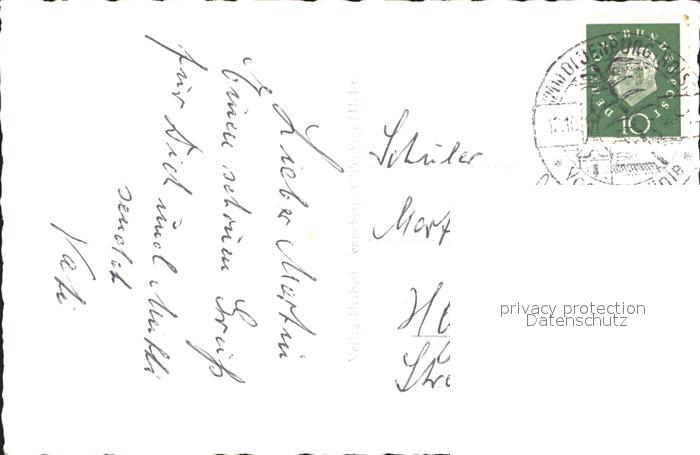 Lieber Martin
Einen schönen Gruß
für Dich und Mutti
sendet
Vati
Verlag Herbert
Schüler
Mart
He
Stre
DEUTSCHE BUNDESPOST
10
OLDENBURG
privacy protection
Datenschutz